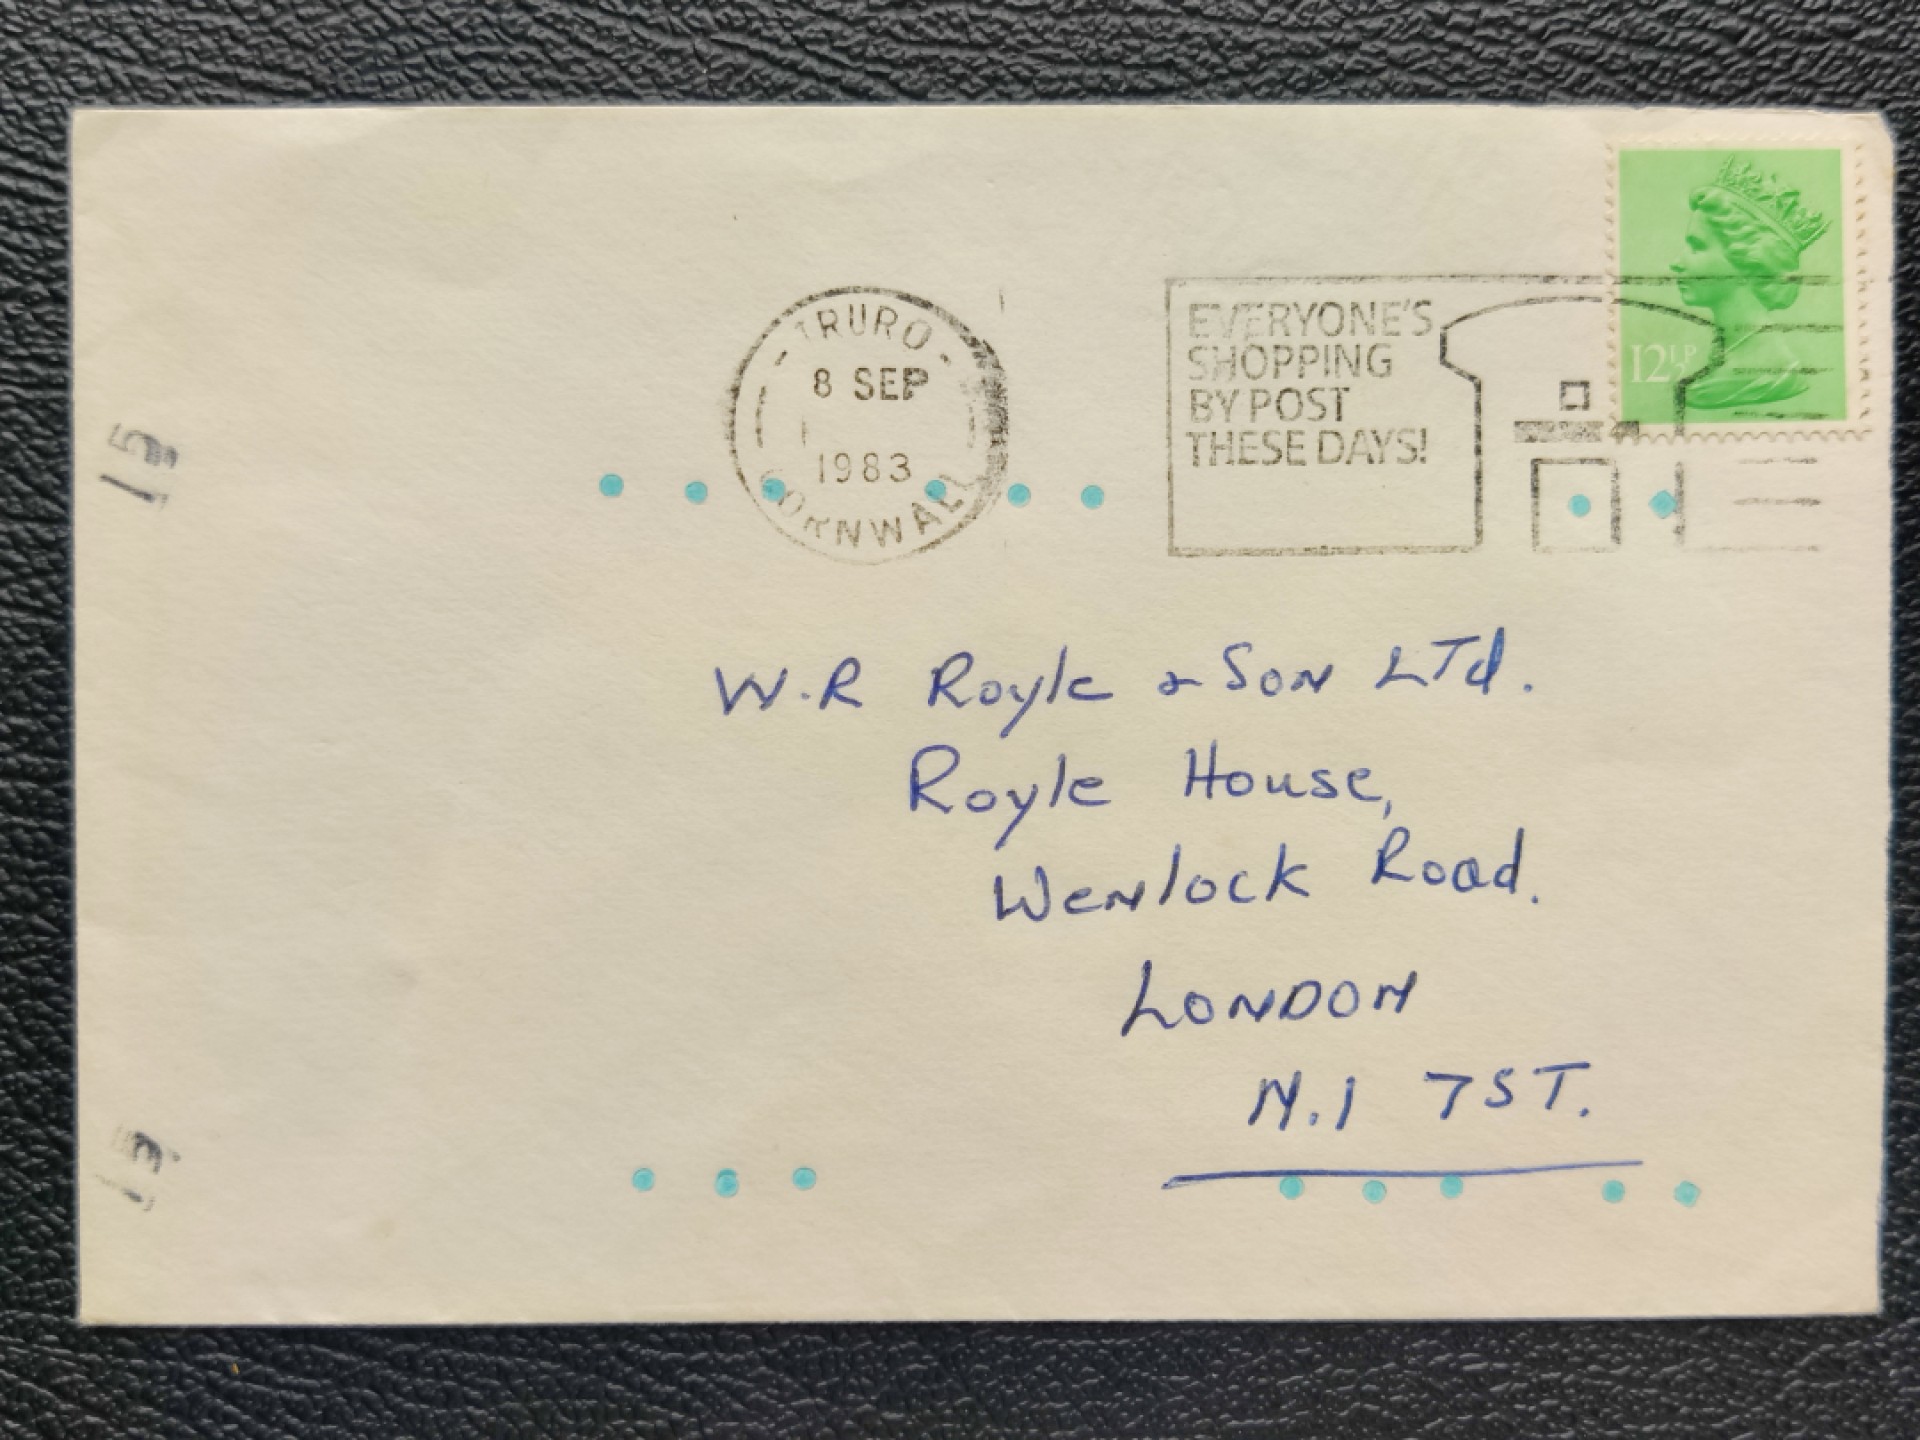 TRURO
8 SEP
1983
CORNWALL
EVERYONE'S
SHOPPING
BY POST
THESE DAYS!
12½P
15
W.R Royle & Son LTd.
Royle House,
Wenlock Road.
LONDON
N.1 7ST.